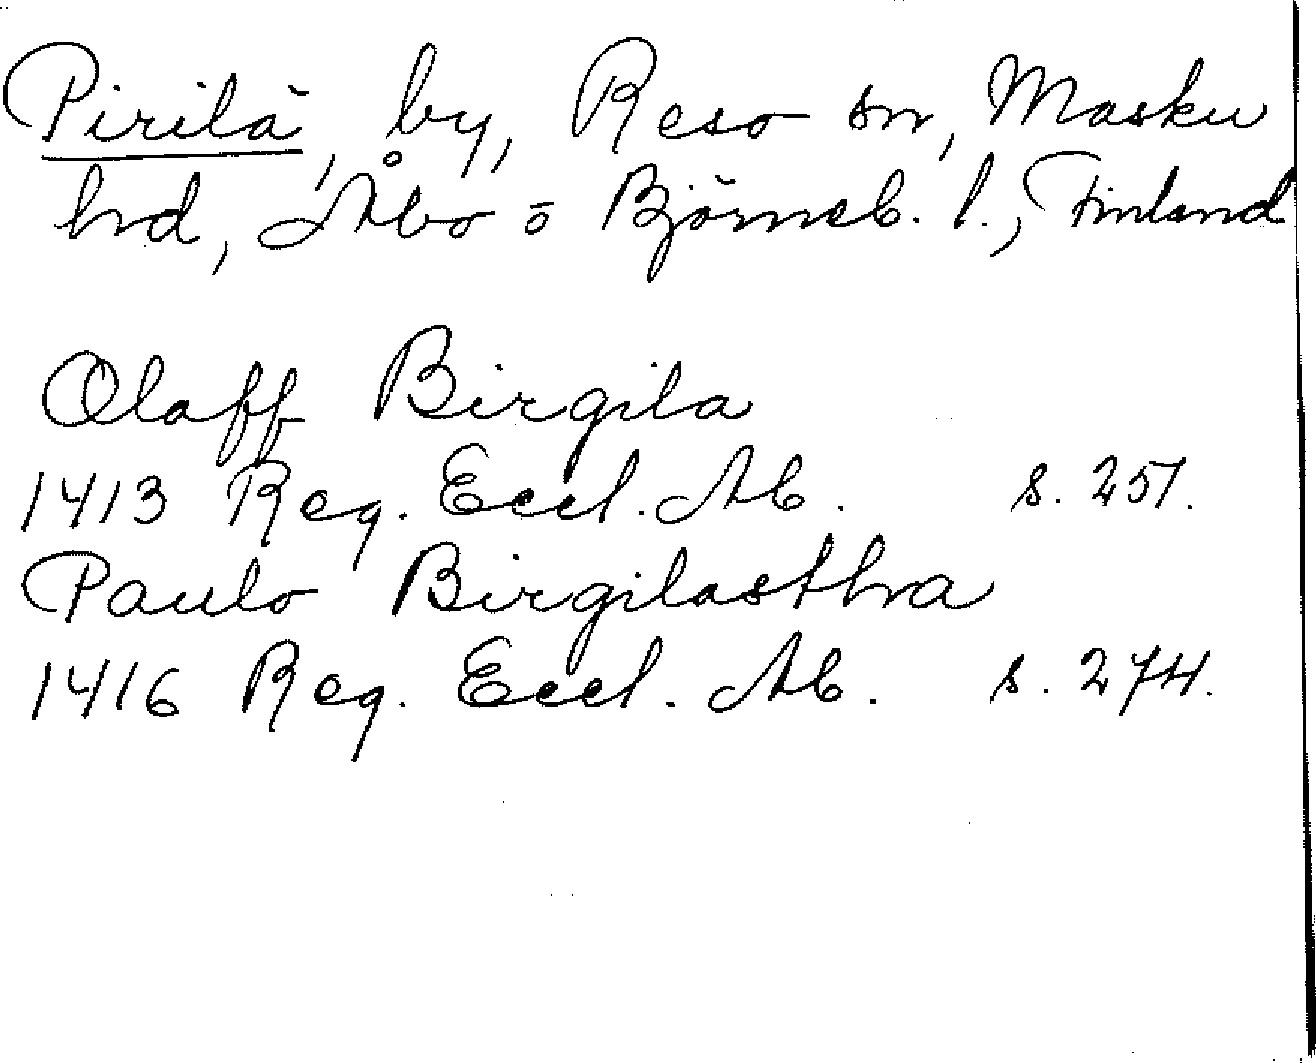 Pirilä, by, Reso sn, Masku
hrd, Åbo o Björneb. l., Finland
Olaff Birgila
1413 Reg. Eccl. Ab. s. 251.
Paulo Birgilasthra
1416 Reg. Eccl. Ab. s. 274.